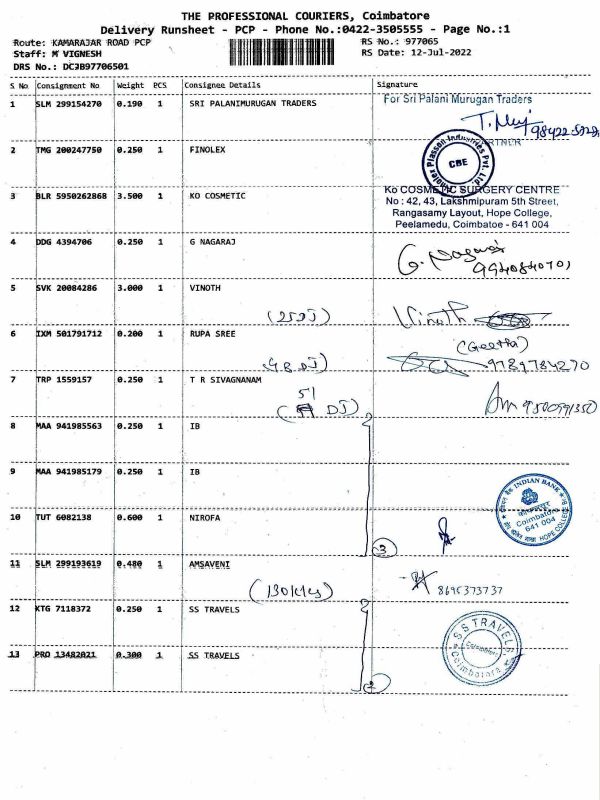 THE PROFESSIONAL COURIERS, Coimbatore
Delivery Runsheet - PCP - Phone No.:0422-3505555 - Page No.:1
Route: KAMARAJAR ROAD PCP RS No.: 977065
Staff: M VIGNESH RS Date: 12-Jul-2022
DRS No.: DCJB97706501
S No Consignment No Weight PCS Consignee Details Signature
1 SLM 299154270 0.190 1 SRI PALANIMURUGAN TRADERS For Sri Palani Murugan Traders
2 TMG 200247750 0.250 1 FINOLEX CBE
3 BLR 5950262868 3.500 1 KO COSMETIC Ko COSMETIC SURGERY CENTRE
No : 42, 43, Lakshmipuram 5th Street,
Rangasamy Layout, Hope College,
Peelamedu, Coimbatoe - 641 004
4 DDG 4394706 0.250 1 G NAGARAJ G. Nagaraj
9940840701
5 SVK 20084286 3.000 1 VINOTH Vinoth
6 IXM 501791712 0.200 1 RUPA SREE (Geetha)
9789784270
7 TRP 1559157 0.250 1 T R SIVAGNANAM
51
DJ)
8 MAA 941985563 0.250 1 IB
9 MAA 941985179 0.250 1 IB INDIAN BANK
Coimbatore
641 004
HOPE COLLEGE
10 TUT 6082138 0.600 1 NIROFA
3
11 SLM 299193619 0.480 1 AMSAVENI
8695373737
12 KTG 7118372 0.250 1 SS TRAVELS SS TRAVELS
Coimbatore
13 PRO 13482021 0.300 1 SS TRAVELS
2